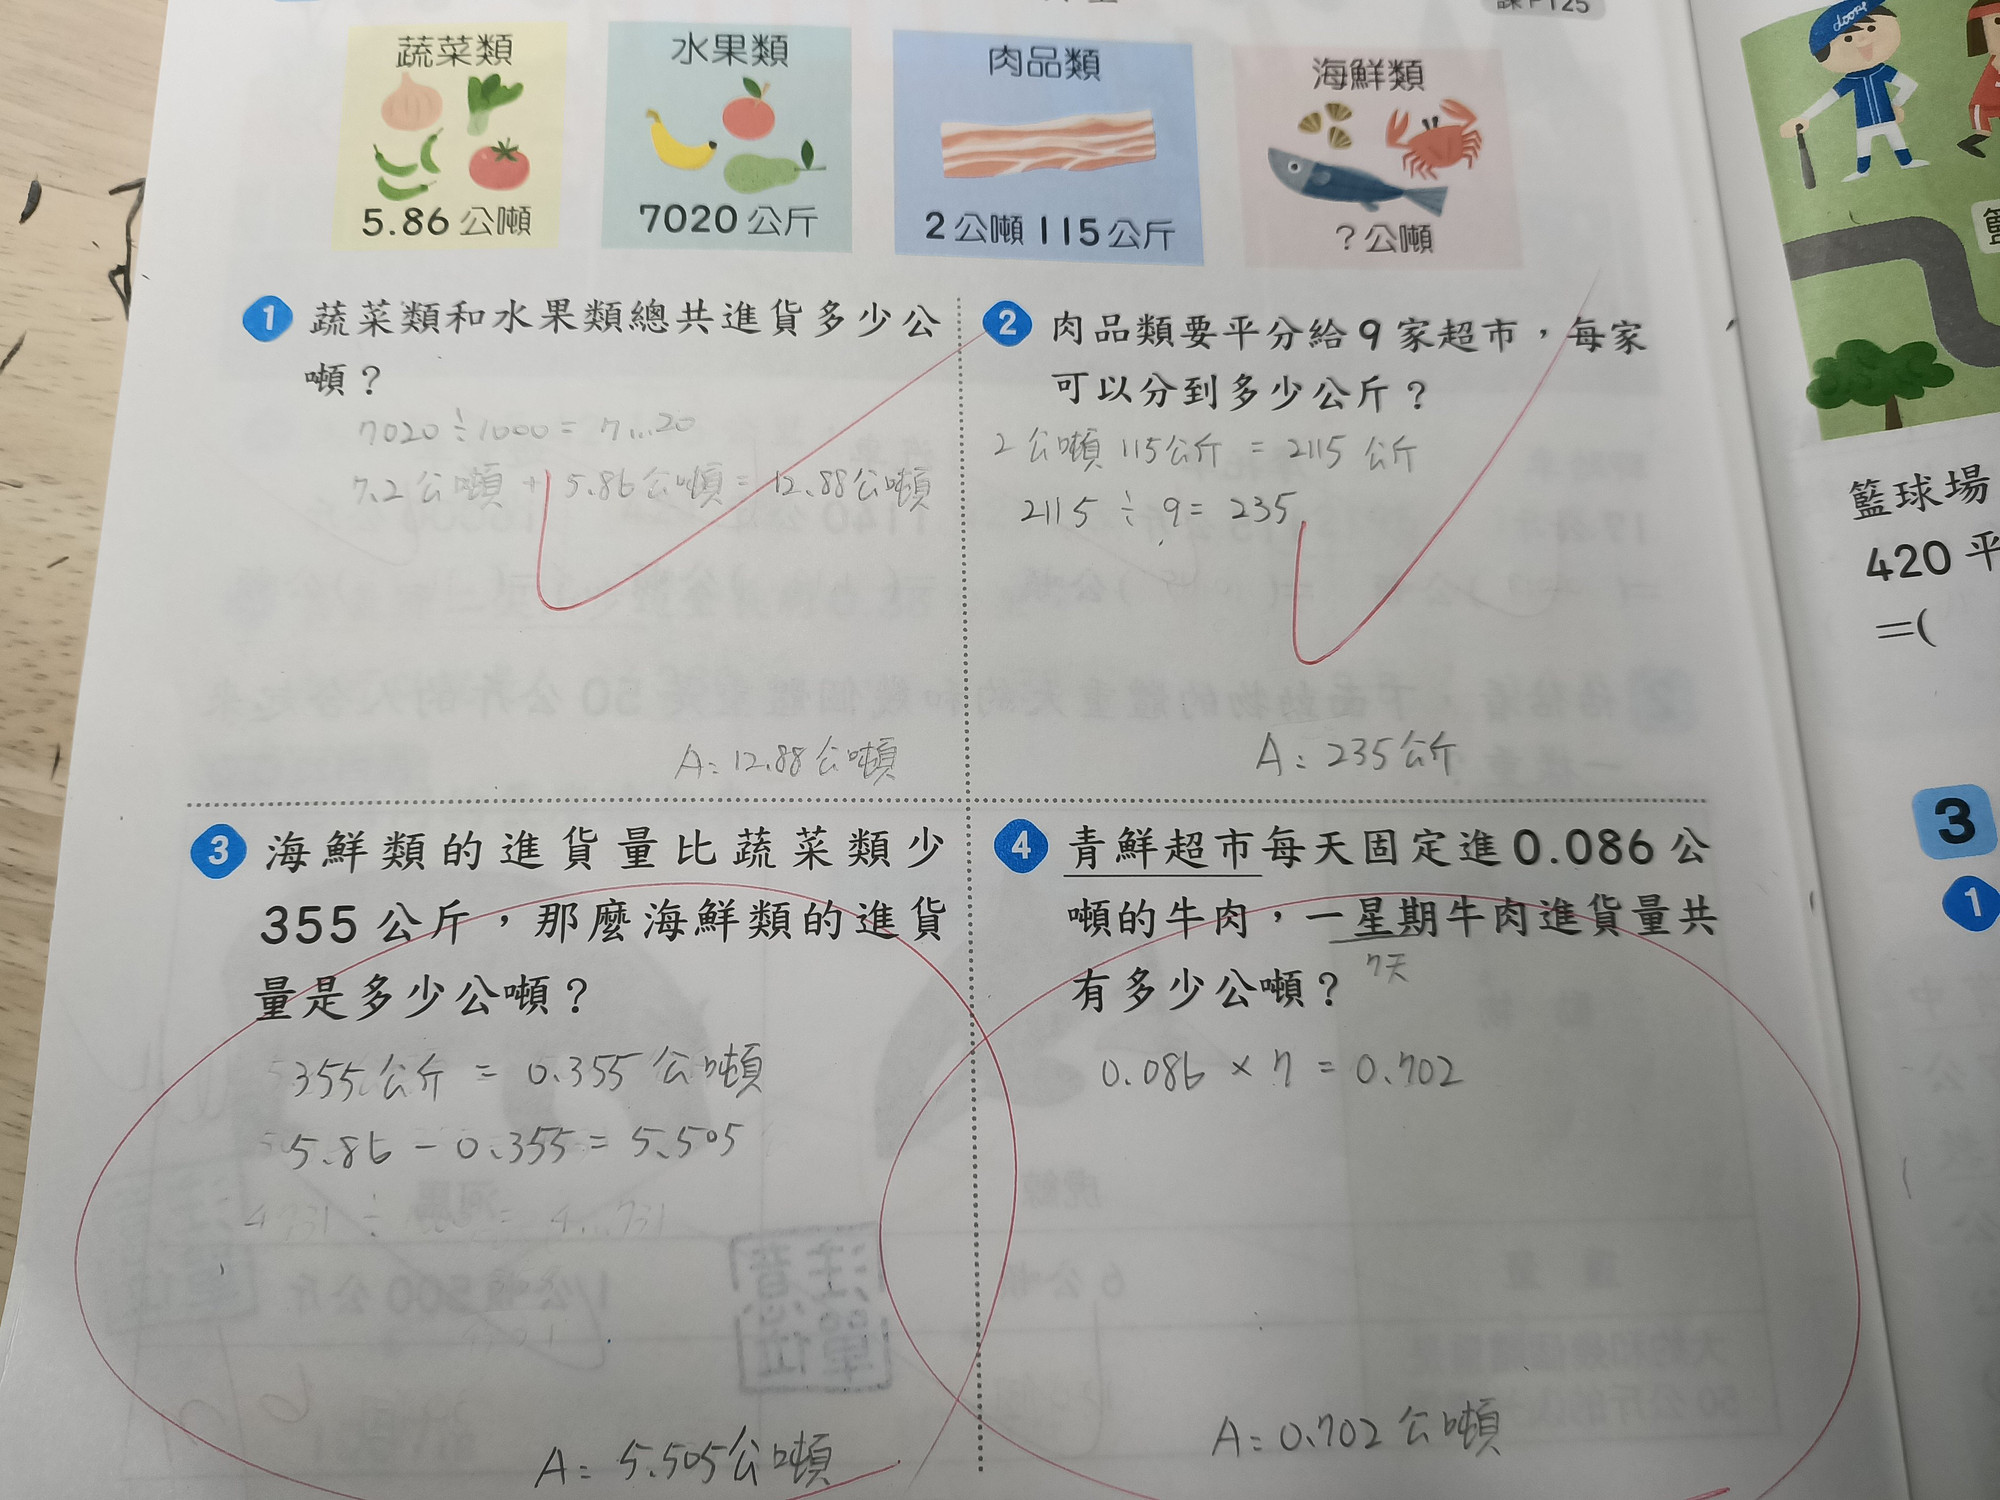 課P125
蔬菜類
5.86公噸
水果類
7020公斤
肉品類
2公噸115公斤
海鮮類
?公噸
1 蔬菜類和水果類總共進貨多少公
噸?
7020÷1000=7...20
7.2公噸+5.86公噸=12.88公噸
A:12.88公噸
2 肉品類要平分給9家超市,每家
可以分到多少公斤?
2公噸115公斤=2115公斤
2115÷9=235
A:235公斤
3 海鮮類的進貨量比蔬菜類少
355公斤,那麼海鮮類的進貨
量是多少公噸?
355公斤=0.355公噸
5.86-0.355=5.505
A:5.505公噸
4 青鮮超市每天固定進0.086公
噸的牛肉,一星期牛肉進貨量共
有多少公噸?
7天
0.086×7=0.702
A:0.702公噸
籃球場
420平
=(
3
1